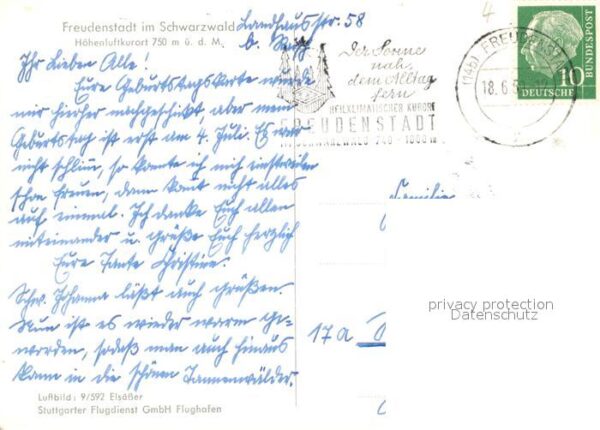 Freudenstadt im Schwarzwald
Höhenluftkurort 750 m ü. d. M.
Landhausstr. 58
b.
Ihr Lieben Alle!
Eure Geburtstagskarte wurde
mir hierher nachgeschickt, aber mein
Geburtstag ist erst am 4. Juli. Es war
nicht schlimm, so konnte ich mich einstweilen
schon freuen, dann kommt nicht alles
auf einmal. Ich danke Euch allen
miteinander u. grüße Euch herzlich
Eure Tante Christine.
Schw. Johanna läßt auch grüßen.
Nun ist es wieder warm ge-
worden, sodaß man auch hinaus
kann in die schönen Tannenwälder.
Luftbild: 9/592 Elsäßer
Stuttgarter Flugdienst GmbH Flughafen
4
Der Sonne
nah,
dem Alltag
fern
HEILKLIMATISCHER KURORT
FREUDENSTADT
740 - 1000 m
(14b) FREUDENST
18.6.5
10
DEUTSCHE
BUNDESPOST
Familie
17a
privacy protection
Datenschutz